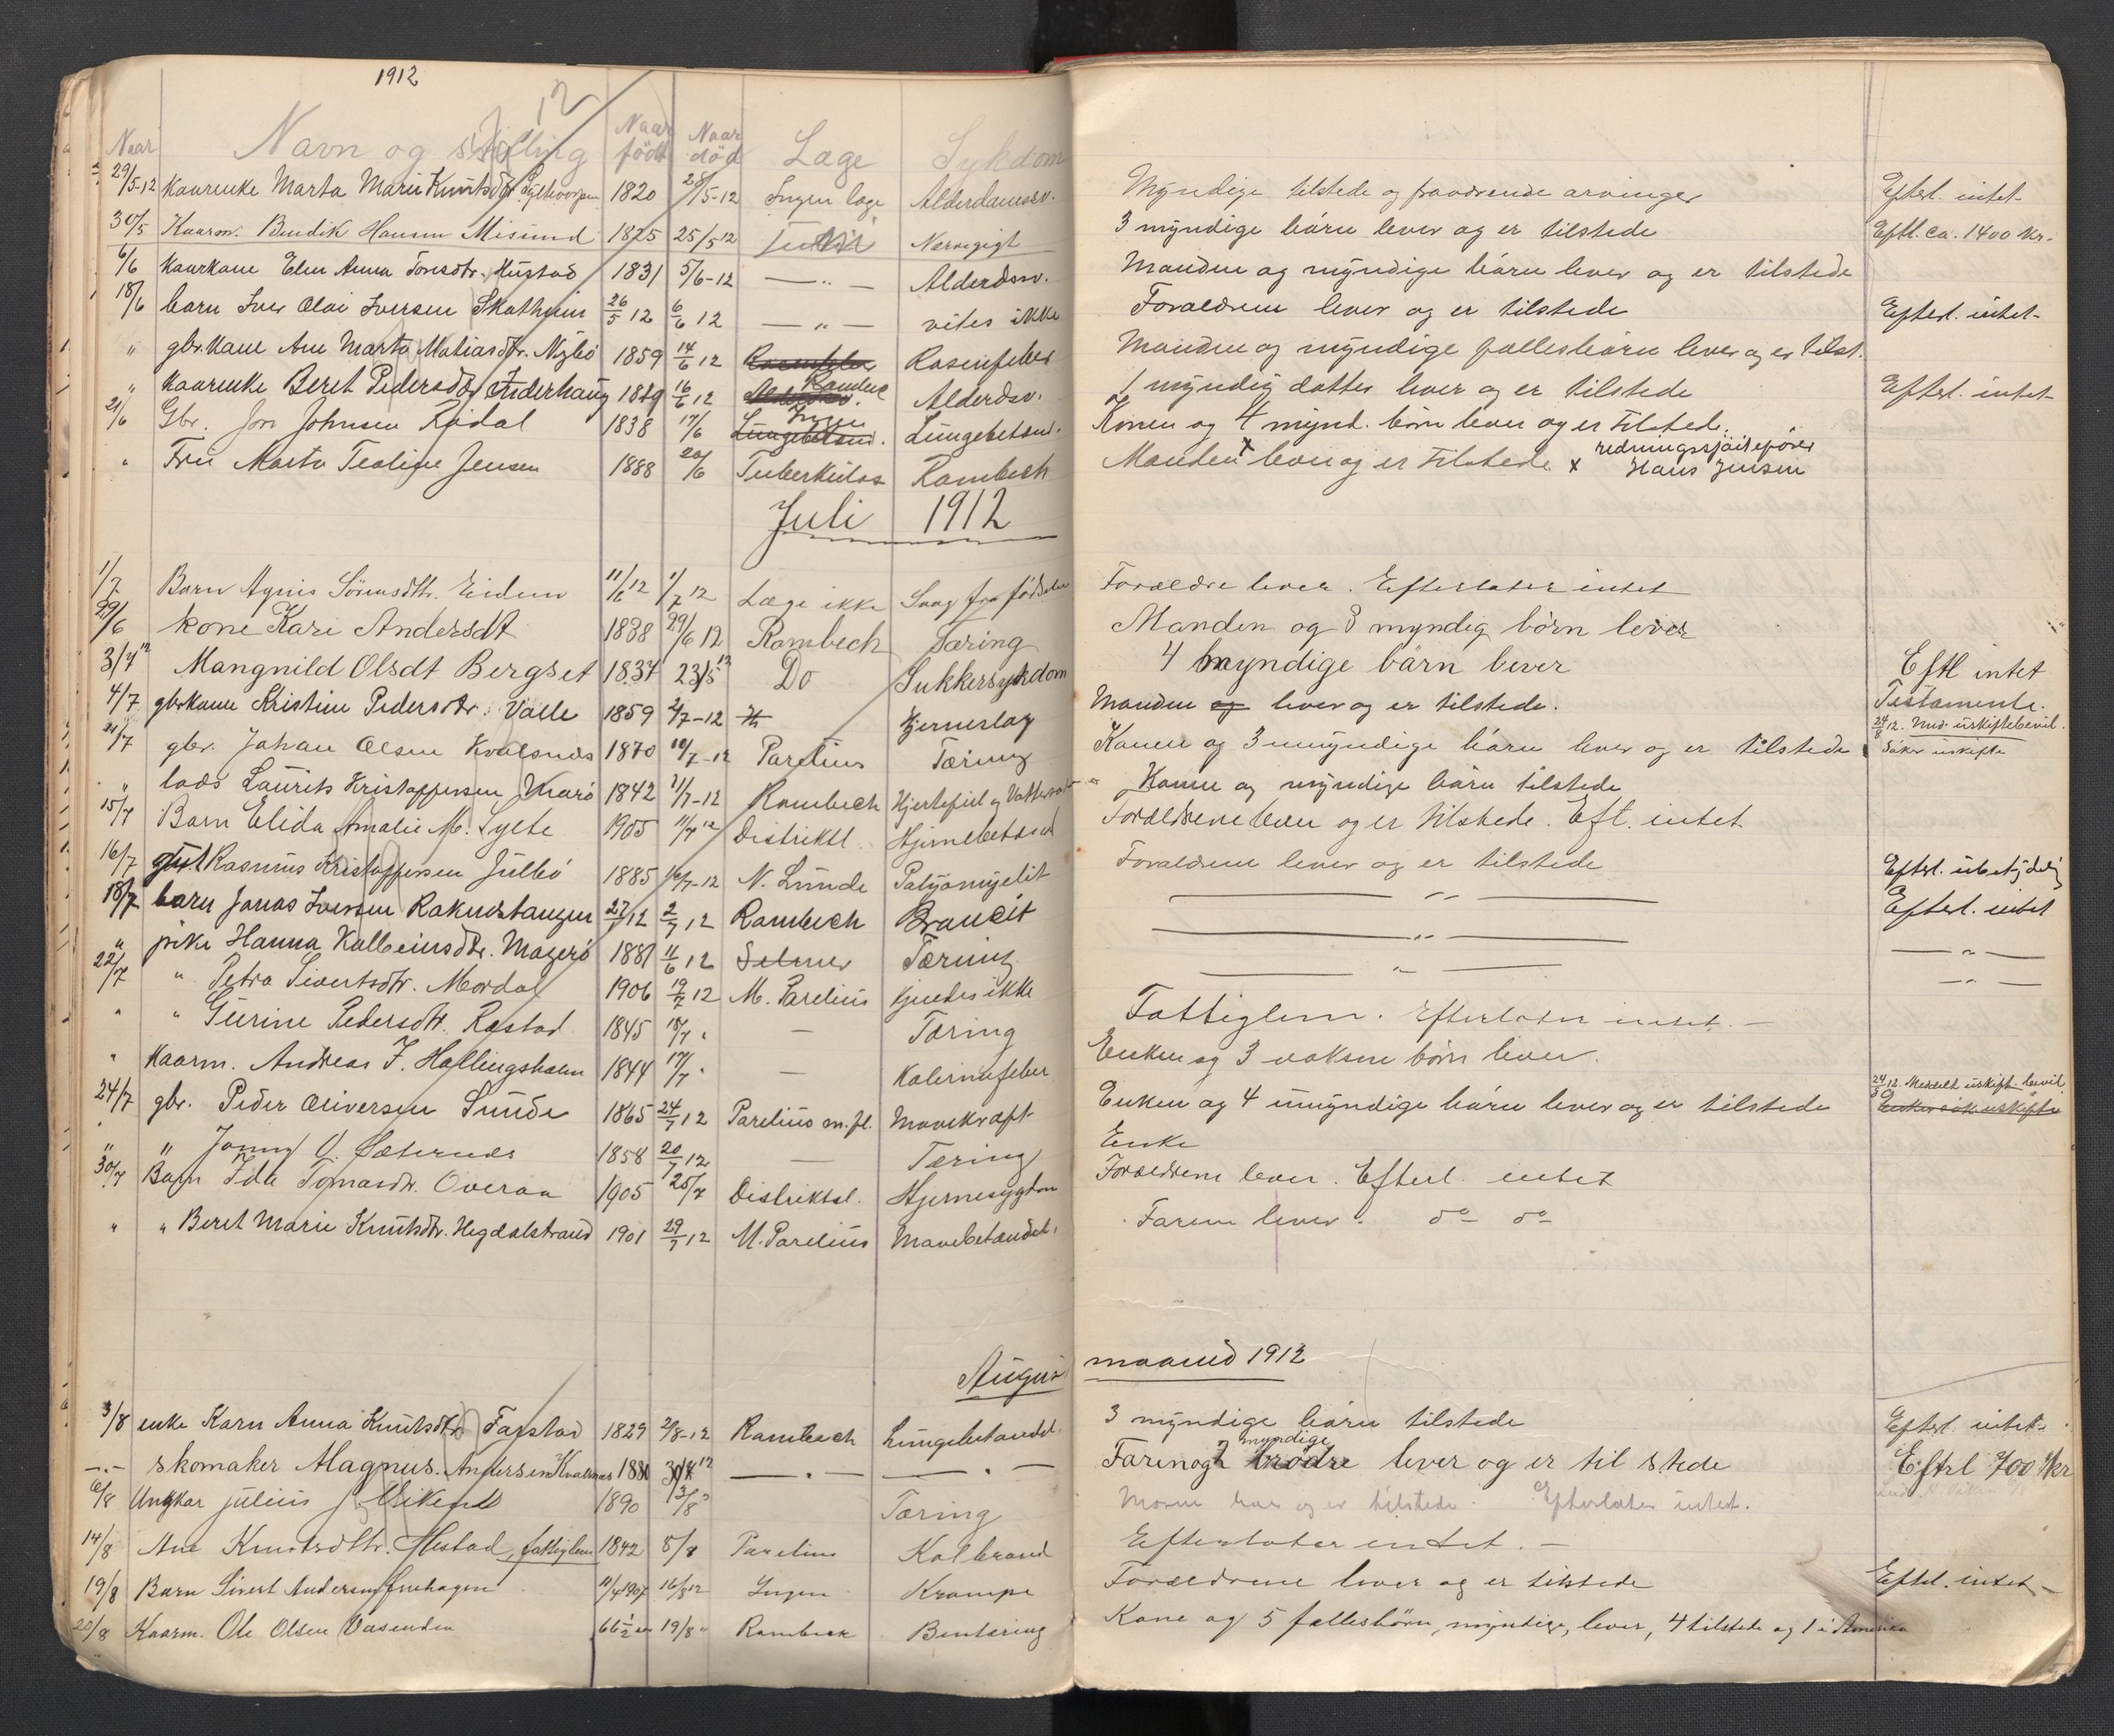 1912
12
Naar Navn og stilling Naar født Naar død Læge Sykdom
29/5-12 Kaarenke Marta Marie Knutsdtr. 1820 28/5-12 Ingen læge Alderdomssv. Myndige tilstede og fraværende arvinger Efterl. intet
30/5 Kaarm. Bendik Hansen Misund 1825 25/5-12 Nervegigt 3 myndige bárn lever og er tilstede Eftl. ca. 1400 Kr.
6/6 Kaarkone Elen Anna Toresdtr. Hustad 1831 5/6-12 — " — Alderdsv. Manden og myndige bárn lever og er tilstede
18/6 barn Iver Olai Iversen Skotheim 26/5 12 6/6 12 — " — vites ikke Forældrene lever og er tilstede Efterl. intet
" gbr. kone Ane Marta Matiasdtr. Nybø 1859 14/6 12 Rosenfeber Rosenfeber Manden og myndige fællesbárn lever og er tilst.
" Kaarenke Beret Pedersdtr. Inderhaug 1829 16/6 12 Alderdsv. 1 myndig datter lever og er tilstede Efterl. intet
21/6 Gbr. Jon Johnsen Rødal 1838 17/6 Lungebetænd. Ingen Lungebetænd. Konen og 4 mynd. börn lever og er tilstede.
" Fru Marta Teoline Jensen 1888 20/6 Tuberkulos Rambech Manden x lever og er tilstede x redningsskjöitefører Hans Jensen
Juli 1912
1/7 Barn Agnes Sörensdtr. Eidem 11/6 12 1/7 12 Læge ikke Svag fra fødselen Forældre lever. Efterlater intet
29/6 kone Kari Andersdt 1838 29/6 12 Rambech Tæring Manden og 3 myndig börn lever
3/7 12 Mangnild Olsdt Bergset 1834 23/5 12 Do Sukkersykdom 4 myndige bárn lever Eftl intet
4/7 gbrkone Kristine Pedersdtr. Valle 1859 2/7-12 Hjerneslag Manden og lever og er tilstede. Testamente.
11/7 gbr. Johan Olsen Kvalsnes 1870 10/7-12 Parelius Tæring Konen og 3 umyndige bárn lever og er tilstede 24/8 12. Med. uskiftebevil. Söker uskifte
" lods Laurits Kristoffersen 1842 11/7-12 Rambech Hjertefeil og Konen og myndige bárn tilstede
15/7 Barn Elida Amalie M. Sylte 1905 11/7 12 Distriktsl. Hjernebetænd Forældrene lever og er tilstede. Eft. intet
16/7 gut Rasmus Kristoffersen Julbö 1885 16/7-12 N. Lunde Polyomyelit Forældrene lever og er tilstede Efterl. ubetydelig
18/7 barn Jonas Iversen Raknestangen 27/ 12 2/7 12 Rambech Broncit — " — Efterl. intet
" pike Hanna Kolbeinsdtr. Magerö 1881 11/6 12 Selmer Tæring — " — — " —
22/7 " Petra Sivertsdtr. Mordal 1906 19/7 12 M. Parelius Kjendes ikke — " — — " —
" " Gurine Pedersdtr. Rastad 1845 18/7 " — Tæring Fattiglem. Efterlater intet. —
" Kaarm. Andreas J. Hollingsholm 1844 17/7 " — Kolerinafeber Enken og 3 voksne börn lever.
24/7 gbr. Peder Oliversen Sunde 1865 24/7 12 Parelius m.fl. Mavekræft Enken og 4 umyndige bárn lever og er tilstede 24/8 12. Meddelt uskift. bevil Enken sök. uskifte
" " O. Sæternes 1858 20/7 12 — Tæring Enke
30/7 Barn Ida Tomasdtr. Overaa 1905 25/7 Distriktsl. Hjernesygdom Forældrene lever. Efterl. intet
" " Beret Marie Knutsdtr. Hegdalstrand 1901 29/7 12 M. Parelius Mavebetændel. Faren lever. do do
August maaned 1912
3/8 enke Karn Anna Knutsdtr. Farstad 1829 2/8-12 Rambech Lungebetændel. 3 myndige bárn tilstede Efterl. intet
—"— skomaker Magnus Andersen Kvalsnes 1881 30/7 12 — " — — " — Faren og 2 myndige brødre lever og er til stede Eftrl 700 Kr
6/8 Ungkar Julius J. Vikend 1890 13/8 " Tæring Moren lever og er tilstede. Efterlater intet.
14/8 Ane Knutsdtr. Hustad, fattiglem 1842 8/8 Parelius Kolbrand Efterlater intet. —
19/8 Barn Sivert Andersen 11/4 1907 16/8 12 Ingen Krampe Forældrene lever og er tilstede Efterl. intet —
20/8 Kaarm. Ole Olsen Vasenden 66 1/2 aar 19/8 " Rambech Bentæring Kone og 5 fællesbörn, myndige, lever, 4 tilstede og 1 i Amerika